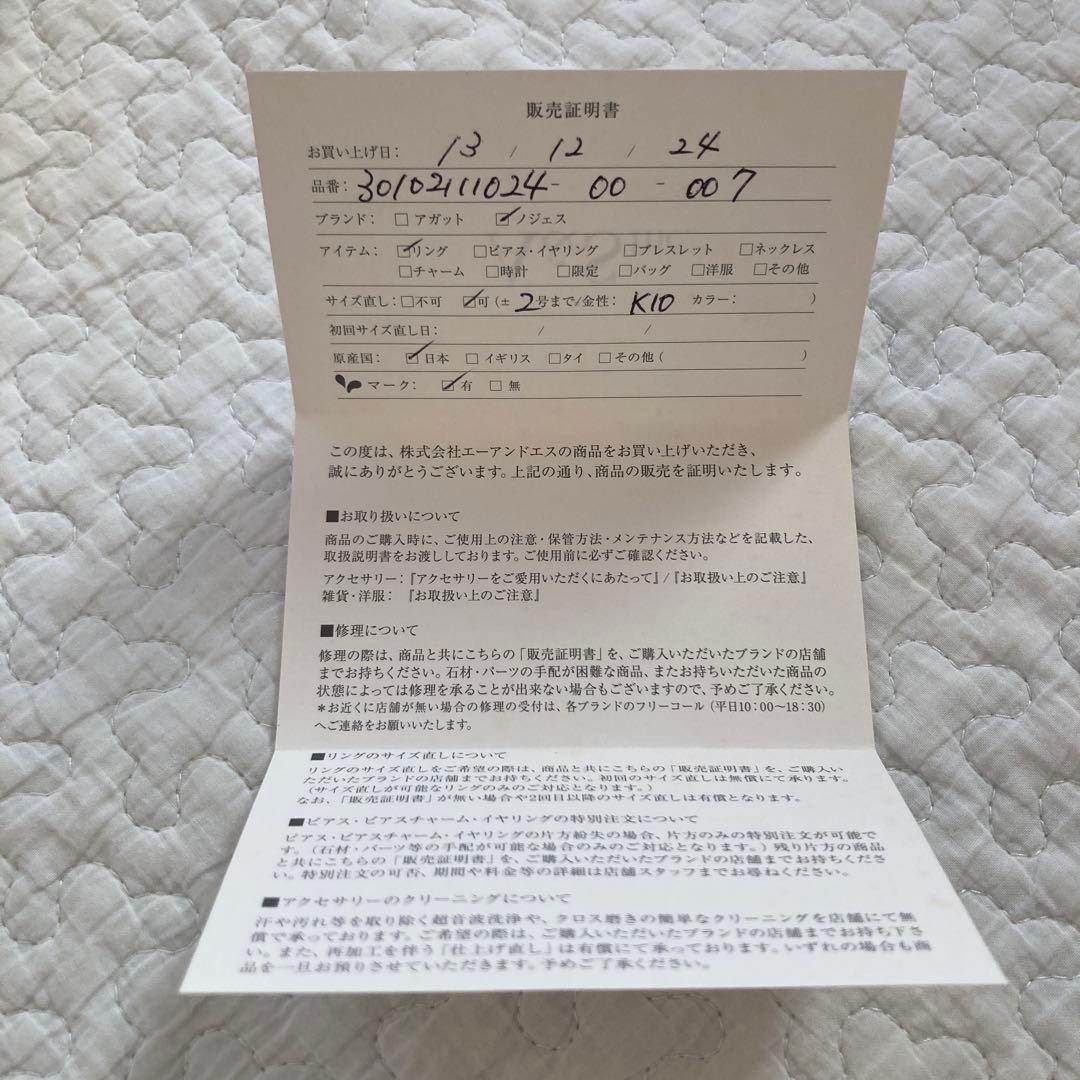 販売証明書
お買い上げ日： 13 / 12 / 24
品番：30102111024- 00 - 007
ブランド： □ アガット ☑ノジェス
アイテム：☑リング □ピアス・イヤリング □ブレスレット □ネックレス
□チャーム □時計 □限定 □バッグ □洋服 □その他
サイズ直し：□不可 ☑可（± 2号まで/金性： K10 カラー： ）
初回サイズ直し日： / /
原産国： ☑日本 □イギリス □タイ □その他（ ）
マーク： ☑有 □無
この度は、株式会社エーアンドエスの商品をお買い上げいただき、
誠にありがとうございます。上記の通り、商品の販売を証明いたします。
■お取り扱いについて
商品のご購入時に、ご使用上の注意・保管方法・メンテナンス方法などを記載した、
取扱説明書をお渡ししております。ご使用前に必ずご確認ください。
アクセサリー：『アクセサリーをご愛用いただくにあたって』/『お取扱い上のご注意』
雑貨・洋服： 『お取扱い上のご注意』
■修理について
修理の際は、商品と共にこちらの「販売証明書」を、ご購入いただいたブランドの店舗
までお持ちください。石材・パーツの手配が困難な商品、またお持ちいただいた商品の
状態によっては修理を承ることが出来ない場合もございますので、予めご了承ください。
＊お近くに店舗が無い場合の修理の受付は、各ブランドのフリーコール（平日10：00〜18：30）
へご連絡をお願いいたします。
■リングのサイズ直しについて
リングのサイズ直しをご希望の際は、商品と共にこちらの「販売証明書」を、ご購入い
ただいたブランドの店舗までお持ちください。初回のサイズ直しは無償にて承ります。
（サイズ直しが可能なリングのみのご対応となります。）
なお、「販売証明書」が無い場合や2回目以降のサイズ直しは有償となります。
■ピアス・ピアスチャーム・イヤリングの特別注文について
ピアス・ピアスチャーム・イヤリングの片方紛失の場合、片方のみの特別注文が可能で
す。（石材・パーツ等の手配が可能な場合のみのご対応となります。）残り片方の商品
と共にこちらの「販売証明書」を、ご購入いただいたブランドの店舗までお持ちくださ
い。特別注文の可否、期間や料金等の詳細は店舗スタッフまでお尋ねください。
■アクセサリーのクリーニングについて
汗や汚れ等を取り除く超音波洗浄や、クロス磨きの簡単なクリーニングを店舗にて無
償で承っております。ご希望の際は、ご購入いただいたブランドの店舗までお持ち下さ
い。また、再加工を伴う「仕上げ直し」は有償にて承っております。いずれの場合も商
品を一旦お預りさせていただきます。予めご了承ください。